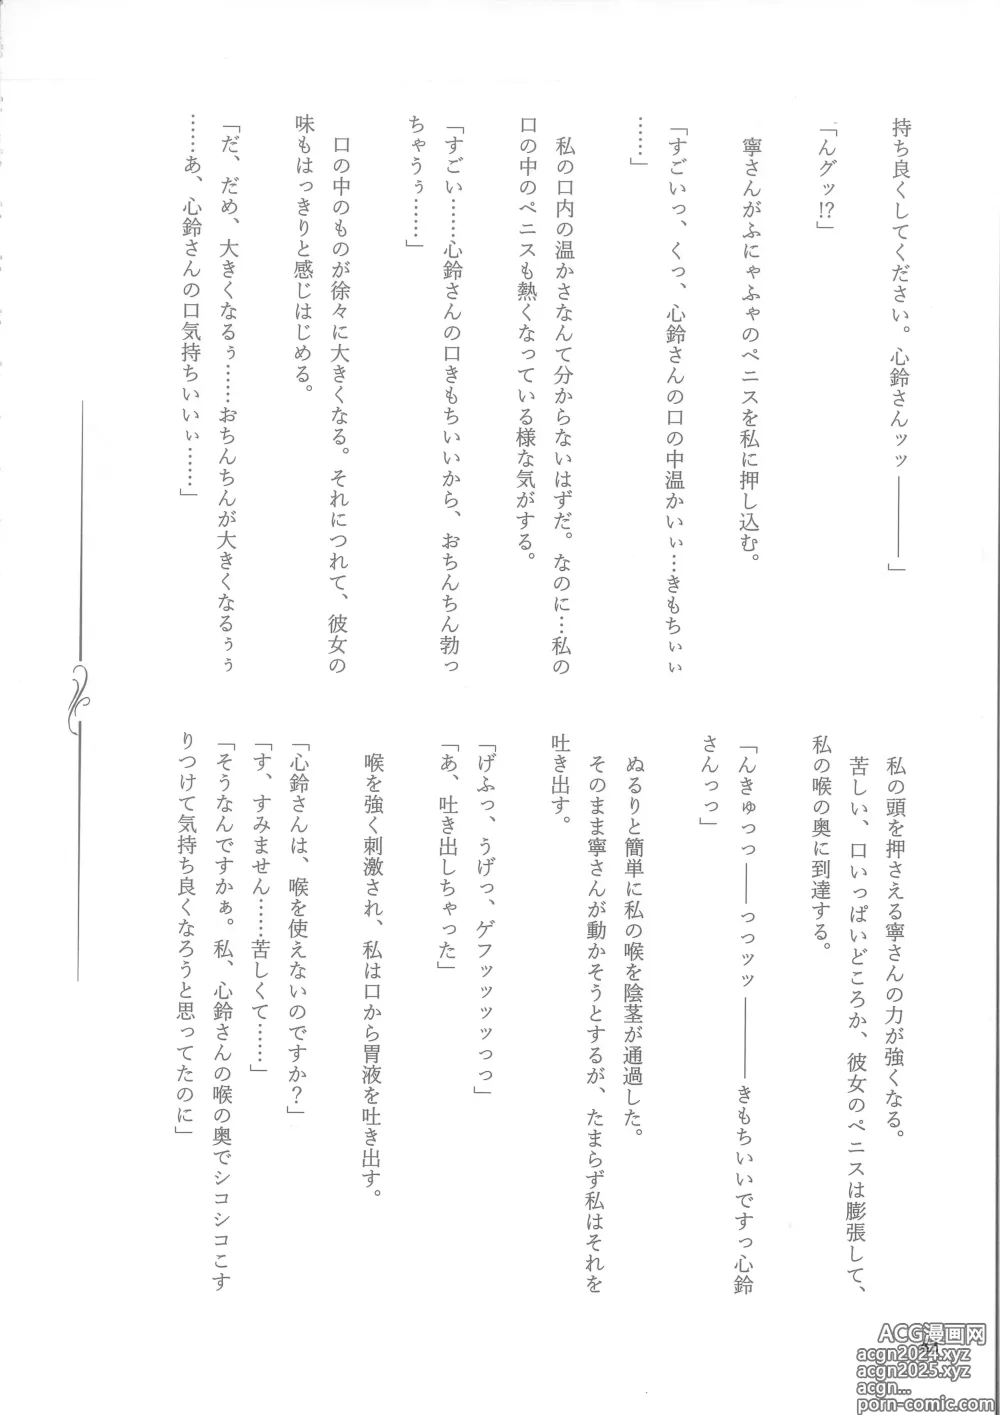 持ち良くしてください。心鈴さんッッ————」
「んグッ!?」
寧さんがふにゃふゃのペニスを私に押し込む。
「すごいっ、くっ、心鈴さんの口の中温かいぃ…きもちぃぃ
……」
私の口内の温かさなんて分からないはずだ。なのに…私の
口の中のペニスも熱くなっている様な気がする。
「すごい……心鈴さんの口きもちいいから、おちんちん勃っ
ちゃうぅ……」
口の中のものが徐々に大きくなる。それにつれて、彼女の
味もはっきりと感じはじめる。
「だ、だめ、大きくなるぅ……おちんちんが大きくなるぅぅ
……あ、心鈴さんの口気持ちいいぃ……」
私の頭を押さえる寧さんの力が強くなる。
苦しい、口いっぱいどころか、彼女のペニスは膨張して、
私の喉の奥に到達する。
「んきゅっっ——っっッッ————きもちいいですっ心鈴
さんっっ」
ぬるりと簡単に私の喉を陰茎が通過した。
そのまま寧さんが動かそうとするが、たまらず私はそれを
吐き出す。
「げふっ、うげっ、ゲフッッッッっっ」
「あ、吐き出しちゃった」
喉を強く刺激され、私は口から胃液を吐き出す。
「心鈴さんは、喉を使えないのですか？」
「す、すみません……苦しくて……」
「そうなんですかぁ。私、心鈴さんの喉の奥でシコシコこす
りつけて気持ち良くなろうと思ってたのに」
ACG漫画网
acgn2024.xyz
acgn2025.xyz
acgn...
porn-comic.com